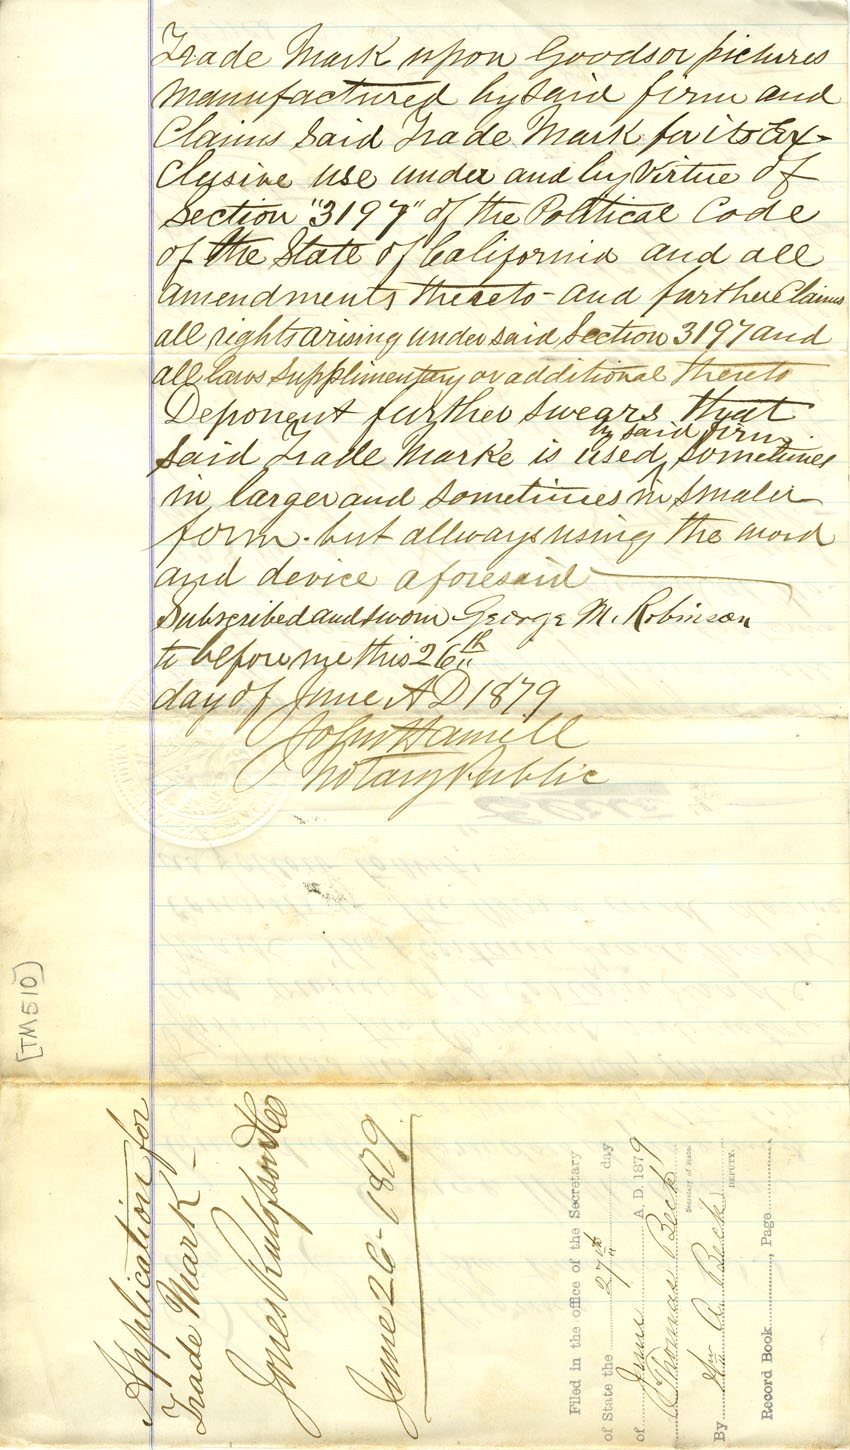 Trade Mark upon Goods or pictures
manufactured by said firm and
Claims Said Trade Mark for its Ex-
clusive use under and by Virtue of
Section "3197" of the Political Code
of the State of California and all
amendments thereto - and further Claims
all rights arising under said Section 3197 and
all laws supplimentary or additional thereto
Deponent further swears that
by said firm
Said Trade Marke is used, sometimes
in larger and sometimes in smaler
form. but allways using the word
and device aforesaid
Subscribed and sworn George M. Robinson
to before me this 26th
day of June AD 1879
John Hamill
Notary Public
[TM510]
Application for
Trade Mark -
Jones Rulofson & Co
June 26 - 1879
Filed in the office of the Secretary
of State the 27th day
of June A. D. 1879
Thomas Beck
Secretary of State
By Wm A. Beck
DEPUTY.
Record Book, Page